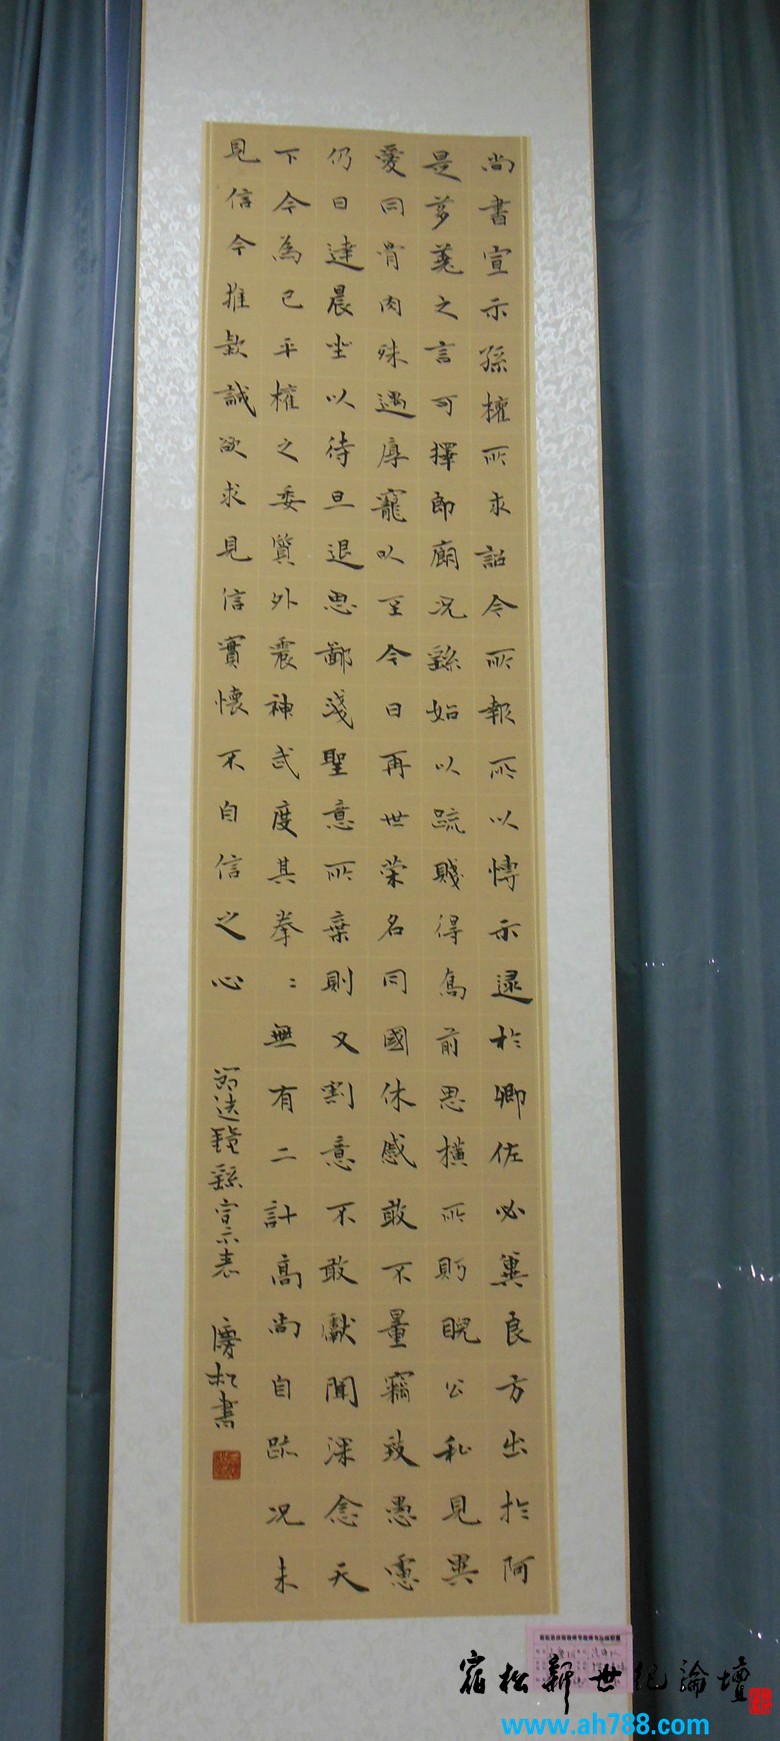 尚書宣示孫權所求詔令所報所以博示逮於卿佐必冀良方出於阿
是芻蕘之言可擇郎廟況繇始以疏賤得為前恩橫所眄睨公私見異
愛同骨肉殊遇厚寵以至今日再世榮名同國休慼敢不量竊致愚慮
仍日達晨坐以待旦退思鄙淺聖意所棄則又割意不敢獻聞深念天
下今為已平權之委質外震神武度其拳〻無有二計高尚自疏況未
見信今推款誠欲求見信實懷不自信之心
繇宣示表
慶松書
宿松新世纪論壇
www.ah788.com